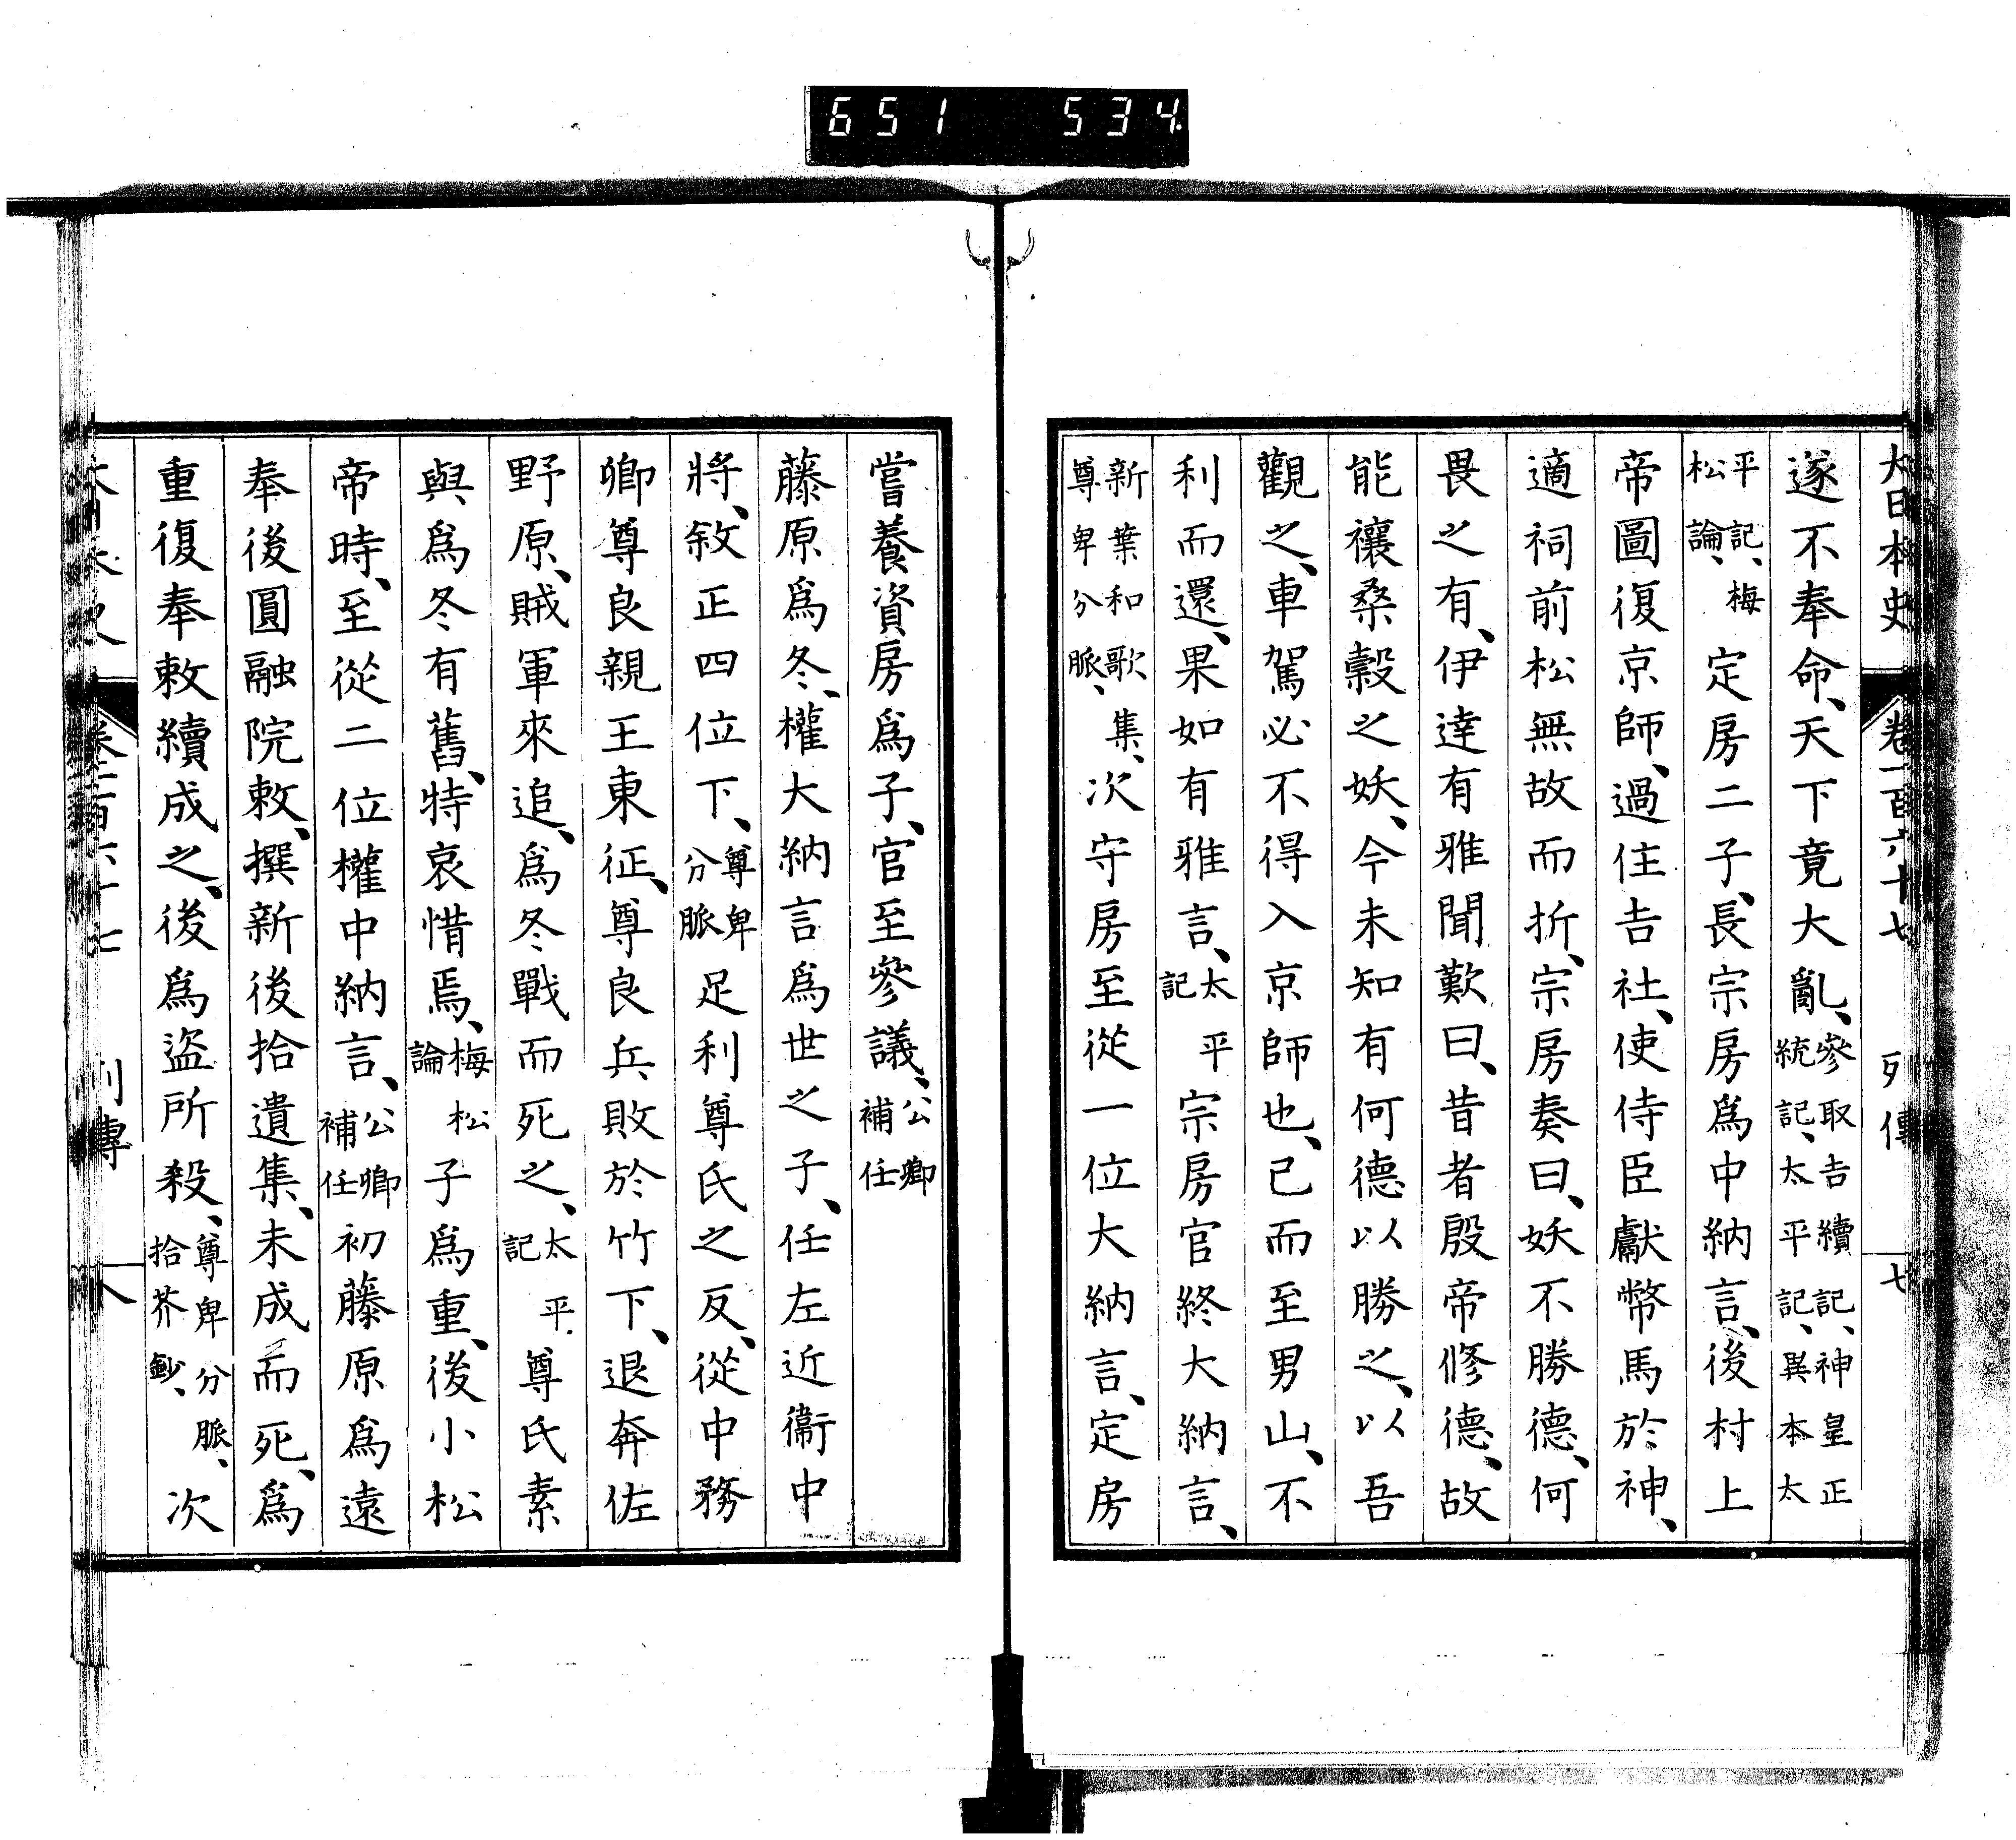 651 534
大日本史 卷一百六十七 列傳 七
遂不奉命、天下竟大亂、參取吉續記、神皇正統記、太平記、異本太
平記、梅松論、定房二子、長宗房爲中納言、後村上
帝圖復京師、過住吉社、使侍臣獻幣馬於神、
適祠前松無故而折、宗房奏曰、妖不勝德、何
畏之有、伊達有雅聞歎曰、昔者殷帝修德、故
能禳桑穀之妖、今未知有何德以勝之、以吾
觀之、車駕必不得入京師也、已而至男山、不
利而還、果如有雅言、太平記宗房官終大納言、
新葉和歌集、尊卑分脈、次守房至從一位大納言、定房
嘗養資房爲子、官至參議、公卿補任
藤原爲冬、權大納言爲世之子、任左近衞中
將、敘正四位下、尊卑分脈足利尊氏之反、從中務
卿尊良親王東征、尊良兵敗於竹下、退奔佐
野原、賊軍來追、爲冬戰而死之、太平記尊氏素
與爲冬有舊、特哀惜焉、梅松論子爲重、後小松
帝時、至從二位權中納言、公卿補任初藤原爲遠
奉後圓融院敕、撰新後拾遺集、未成而死、爲
重復奉敕續成之、後爲盜所殺、尊卑分脈、拾芥鈔、次
列傳 八